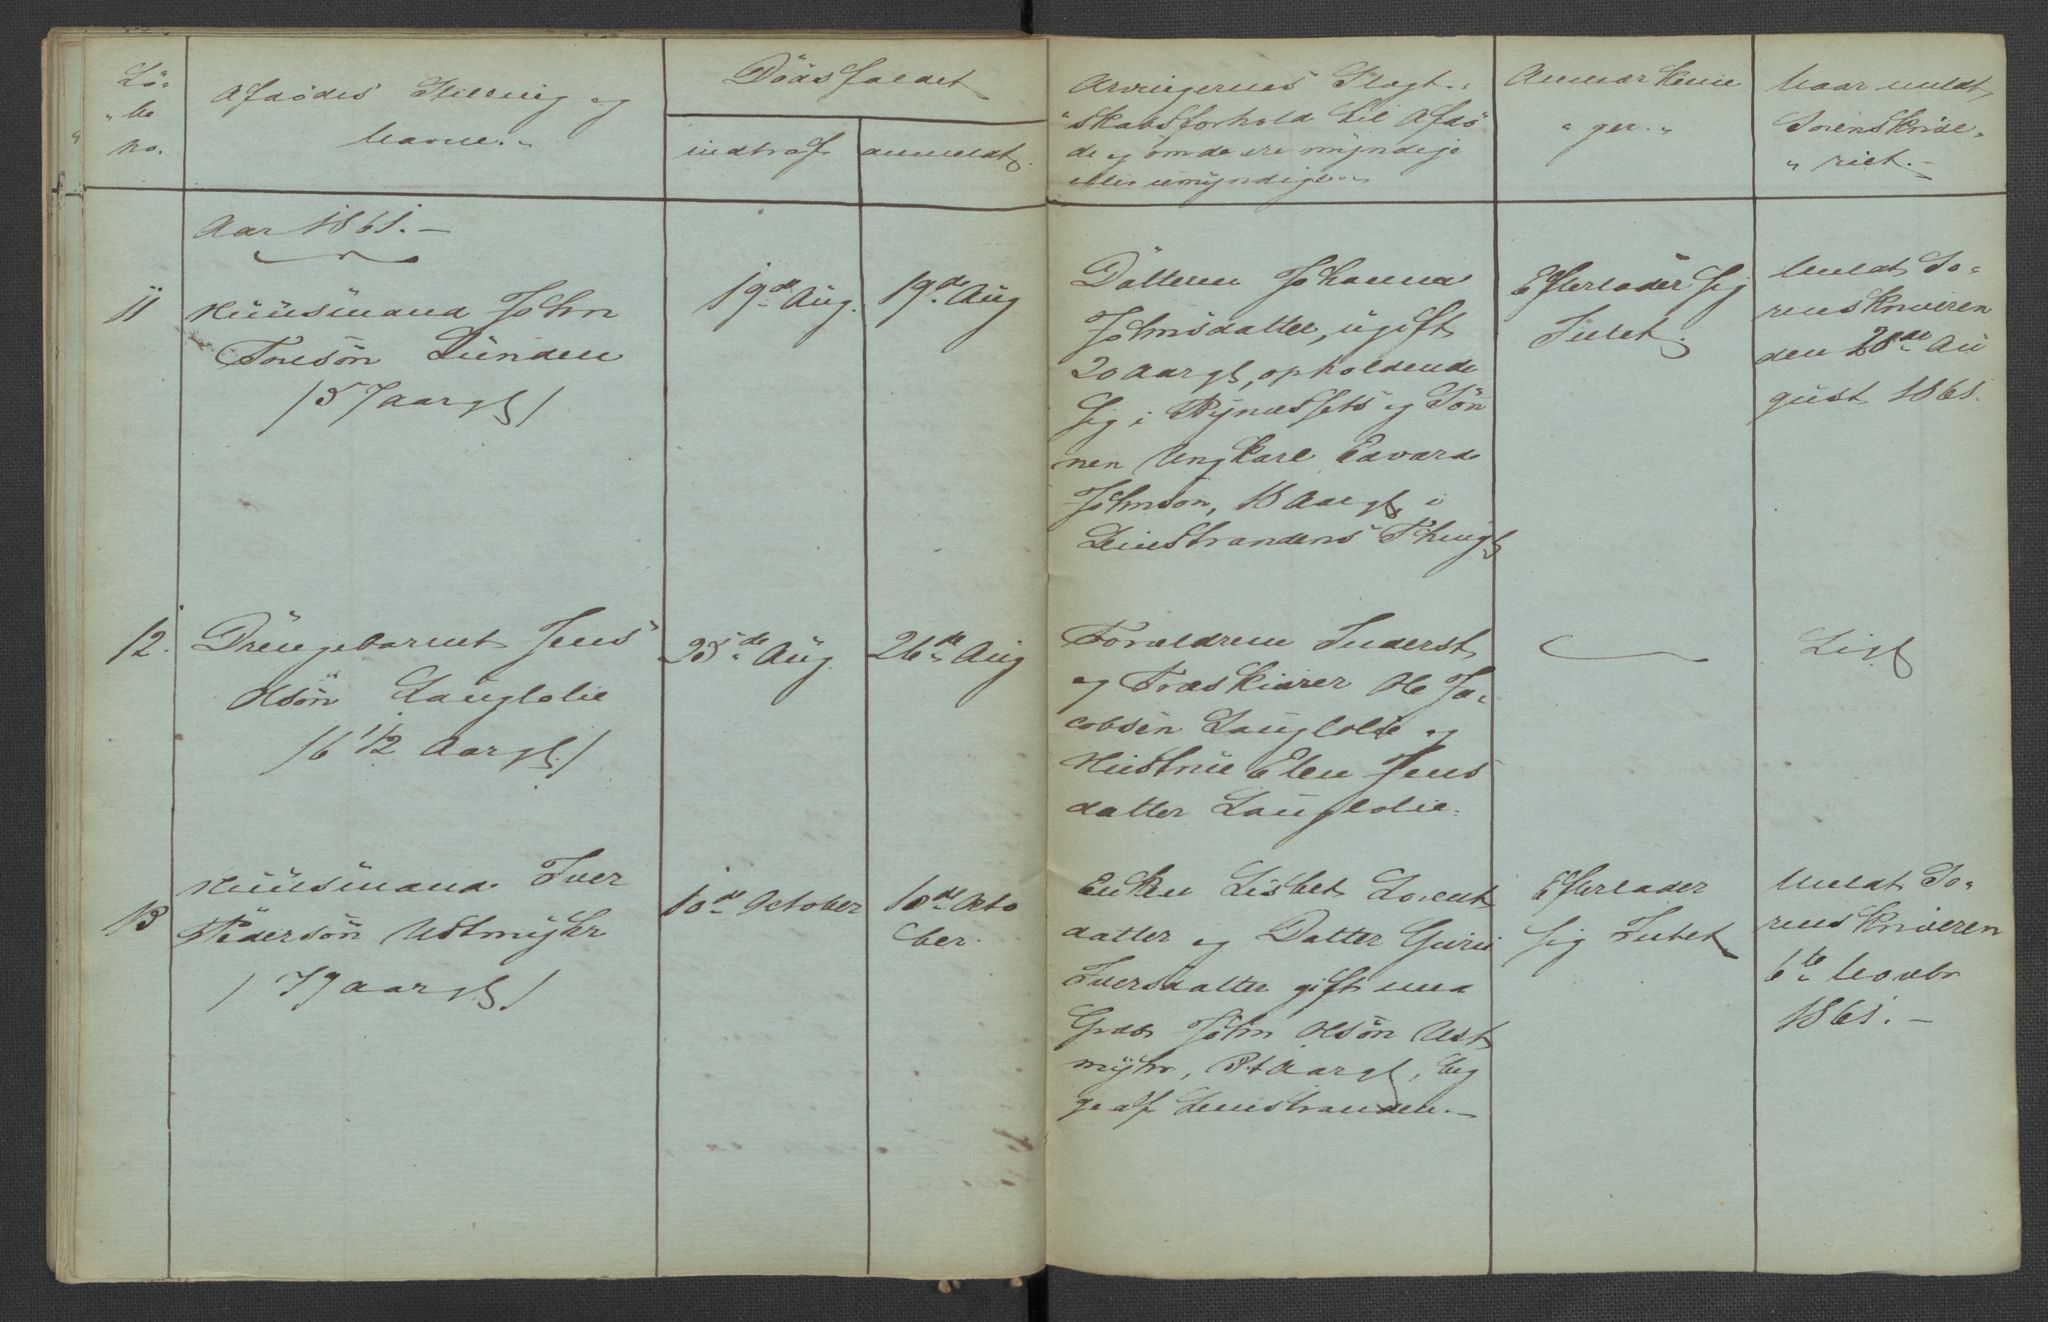 Lö-
be
no.
Afdödes Stilling og
Navn.
Dödsfaldet
indtraf
anmeldt.
Arvingernes Slægt-
skabsforhold til Afdö
de og om de ere myndige
eller umyndige
Anmærknin
ger.
Naar meldt
Sorenskrive-
riet.
Aar 1861.
11
Huusmand John
Toresön Lunden
/57 aargl/
19de Aug.
19de Aug
Datteren Johanna
Johnsdatter, ugift
20 aargl, opholdende
sig i Bynæssets og Sön
nen Ungkarl Edvard
Johnsön, 18 Aargl, i
Leinstrandens Thingl
Efterlader sig
Intet.
Meldt So-
renskriveren
den 28de Au
gust 1861.
12.
Drengebarnet Jens
Olsön Lauglolie
/6 1/2 Aargl./
25de Aug.
26de Aug
Forældrene Inderst
og Træskjærer Ole Ja-
cobsen Lauglolie og
Hustrue Elen Jens
datter Lauglolie.
13
Huusmand Iver
Pedersön Ustmyhr
/79 aargl/
10de October
10de Octo
ber.
Enken Lisbet Lorent
datter og Datter Guru
Iversdatter gift med
Grdbr John Olsön Ust
myhr, Beg
ge af Leinstranden.
Efterlader
sig Intet
Meldt So-
renskriveren
6te Novbr
1861.